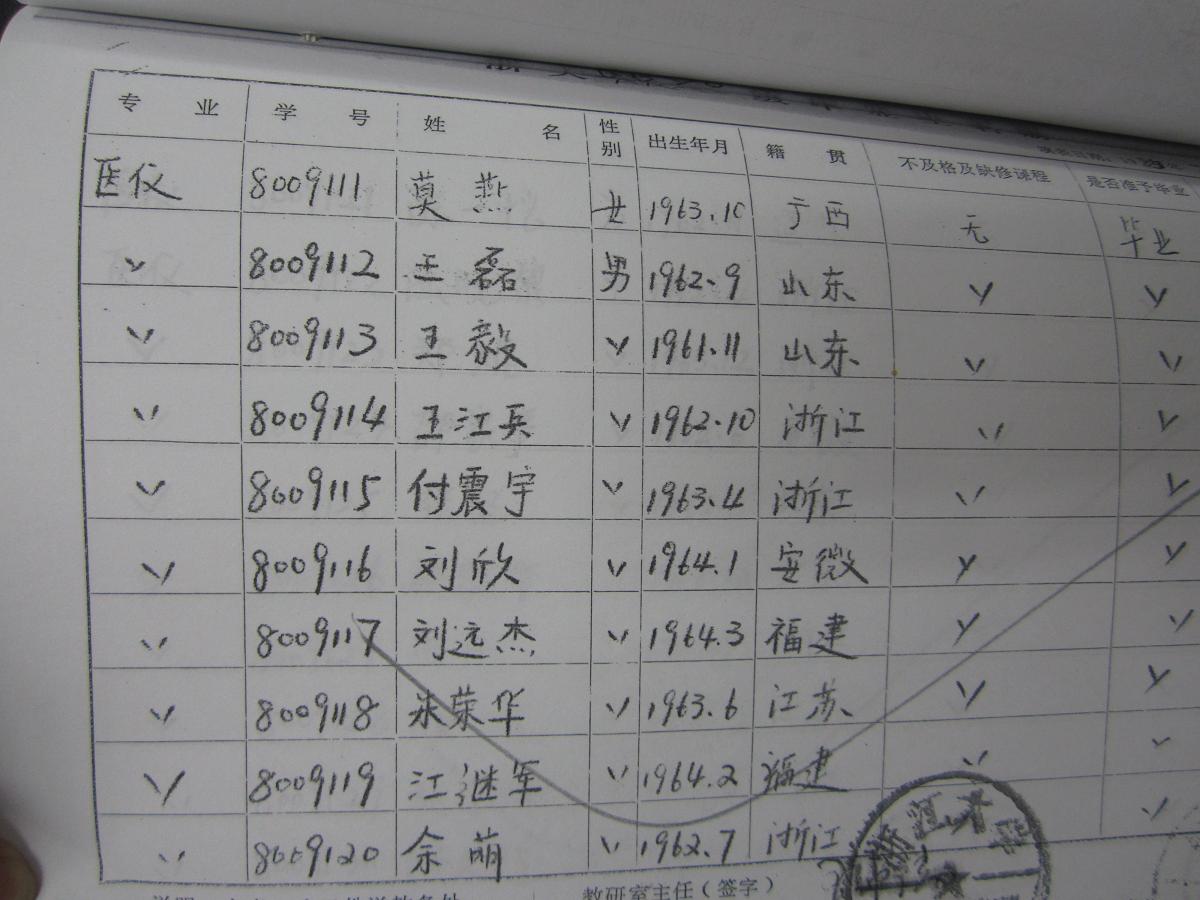 专 业 学 号 姓 名 性别 出生年月 籍 贯 不及格及缺修课程 是否准予毕业
医仪 8009111 莫燕 女 1963.10 广西 无 毕业
〃 8009112 王磊 男 1962.9 山东 〃 〃
〃 8009113 王毅 〃 1961.11 山东 〃 〃
〃 8009114 王江兵 〃 1962.10 浙江 〃 〃
〃 8009115 付震宇 〃 1963.4 浙江 〃 〃
〃 8009116 刘欣 〃 1964.1 安微 〃 〃
〃 8009117 刘远杰 〃 1964.3 福建 〃 〃
〃 8009118 朱荣华 〃 1963.6 江苏 〃 〃
〃 8009119 江继军 〃 1964.2 福建 〃 〃
〃 8009120 余萌 〃 1962.7 浙江
教研室主任(签字)